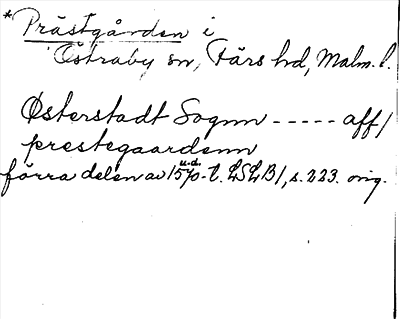 * Prästgården i
Östraby sn, Färs hd, Malm. l.
Østerstadt Sognn ----- aff/
prestegaardenn
förra delen av 1570-t. LSLB1, s. 223. orig.
u.d.